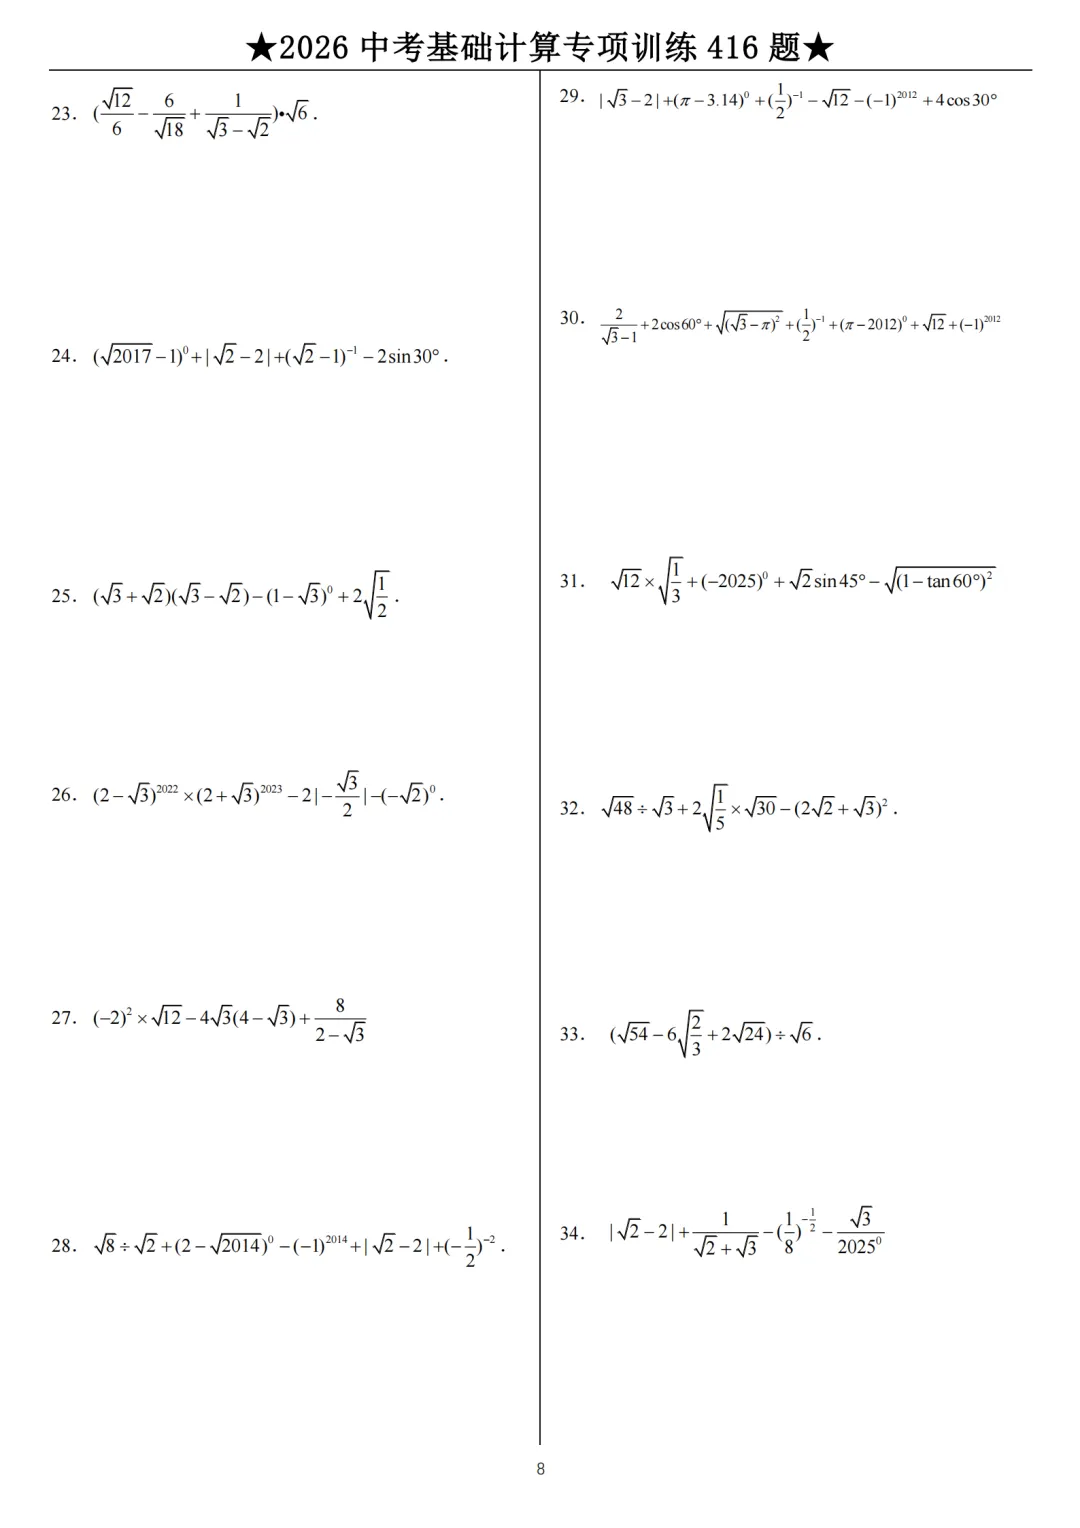 ★2026 中考基础计算专项训练 416 题★
23. $(\frac{\sqrt{12}}{6}-\frac{6}{\sqrt{18}}+\frac{1}{\sqrt{3}-\sqrt{2}})\bullet\sqrt{6}$ .
24. $(\sqrt{2017}-1)^0+|\sqrt{2}-2|+(\sqrt{2}-1)^{-1}-2\sin30°$ .
25. $(\sqrt{3}+\sqrt{2})(\sqrt{3}-\sqrt{2})-(1-\sqrt{3})^0+2\sqrt{\frac{1}{2}}$ .
26. $(2-\sqrt{3})^{2022}\times(2+\sqrt{3})^{2023}-2|-\frac{\sqrt{3}}{2}|-(-\sqrt{2})^0$ .
27. $(-2)^2\times\sqrt{12}-4\sqrt{3}(4-\sqrt{3})+\frac{8}{2-\sqrt{3}}$
28. $\sqrt{8}\div\sqrt{2}+(2-\sqrt{2014})^0-(-1)^{2014}+|\sqrt{2}-2|+(-\frac{1}{2})^{-2}$ .
29. $|\sqrt{3}-2|+(\pi-3.14)^0+(\frac{1}{2})^{-1}-\sqrt{12}-(-1)^{2012}+4\cos30°$
30. $\frac{2}{\sqrt{3}-1}+2\cos60°+\sqrt{(\sqrt{3}-\pi)^2}+(\frac{1}{2})^{-1}+(\pi-2012)^0+\sqrt{12}+(-1)^{2012}$
31. $\sqrt{12}\times\sqrt{\frac{1}{3}}+(-2025)^0+\sqrt{2}\sin45°-\sqrt{(1-\tan60°)^2}$
32. $\sqrt{48}\div\sqrt{3}+2\sqrt{\frac{1}{5}}\times\sqrt{30}-(2\sqrt{2}+\sqrt{3})^2$ .
33. $(\sqrt{54}-6\sqrt{\frac{2}{3}}+2\sqrt{24})\div\sqrt{6}$ .
34. $|\sqrt{2}-2|+\frac{1}{\sqrt{2}+\sqrt{3}}-(\frac{1}{8})^{-\frac{1}{2}}-\frac{\sqrt{3}}{2025^0}$
8